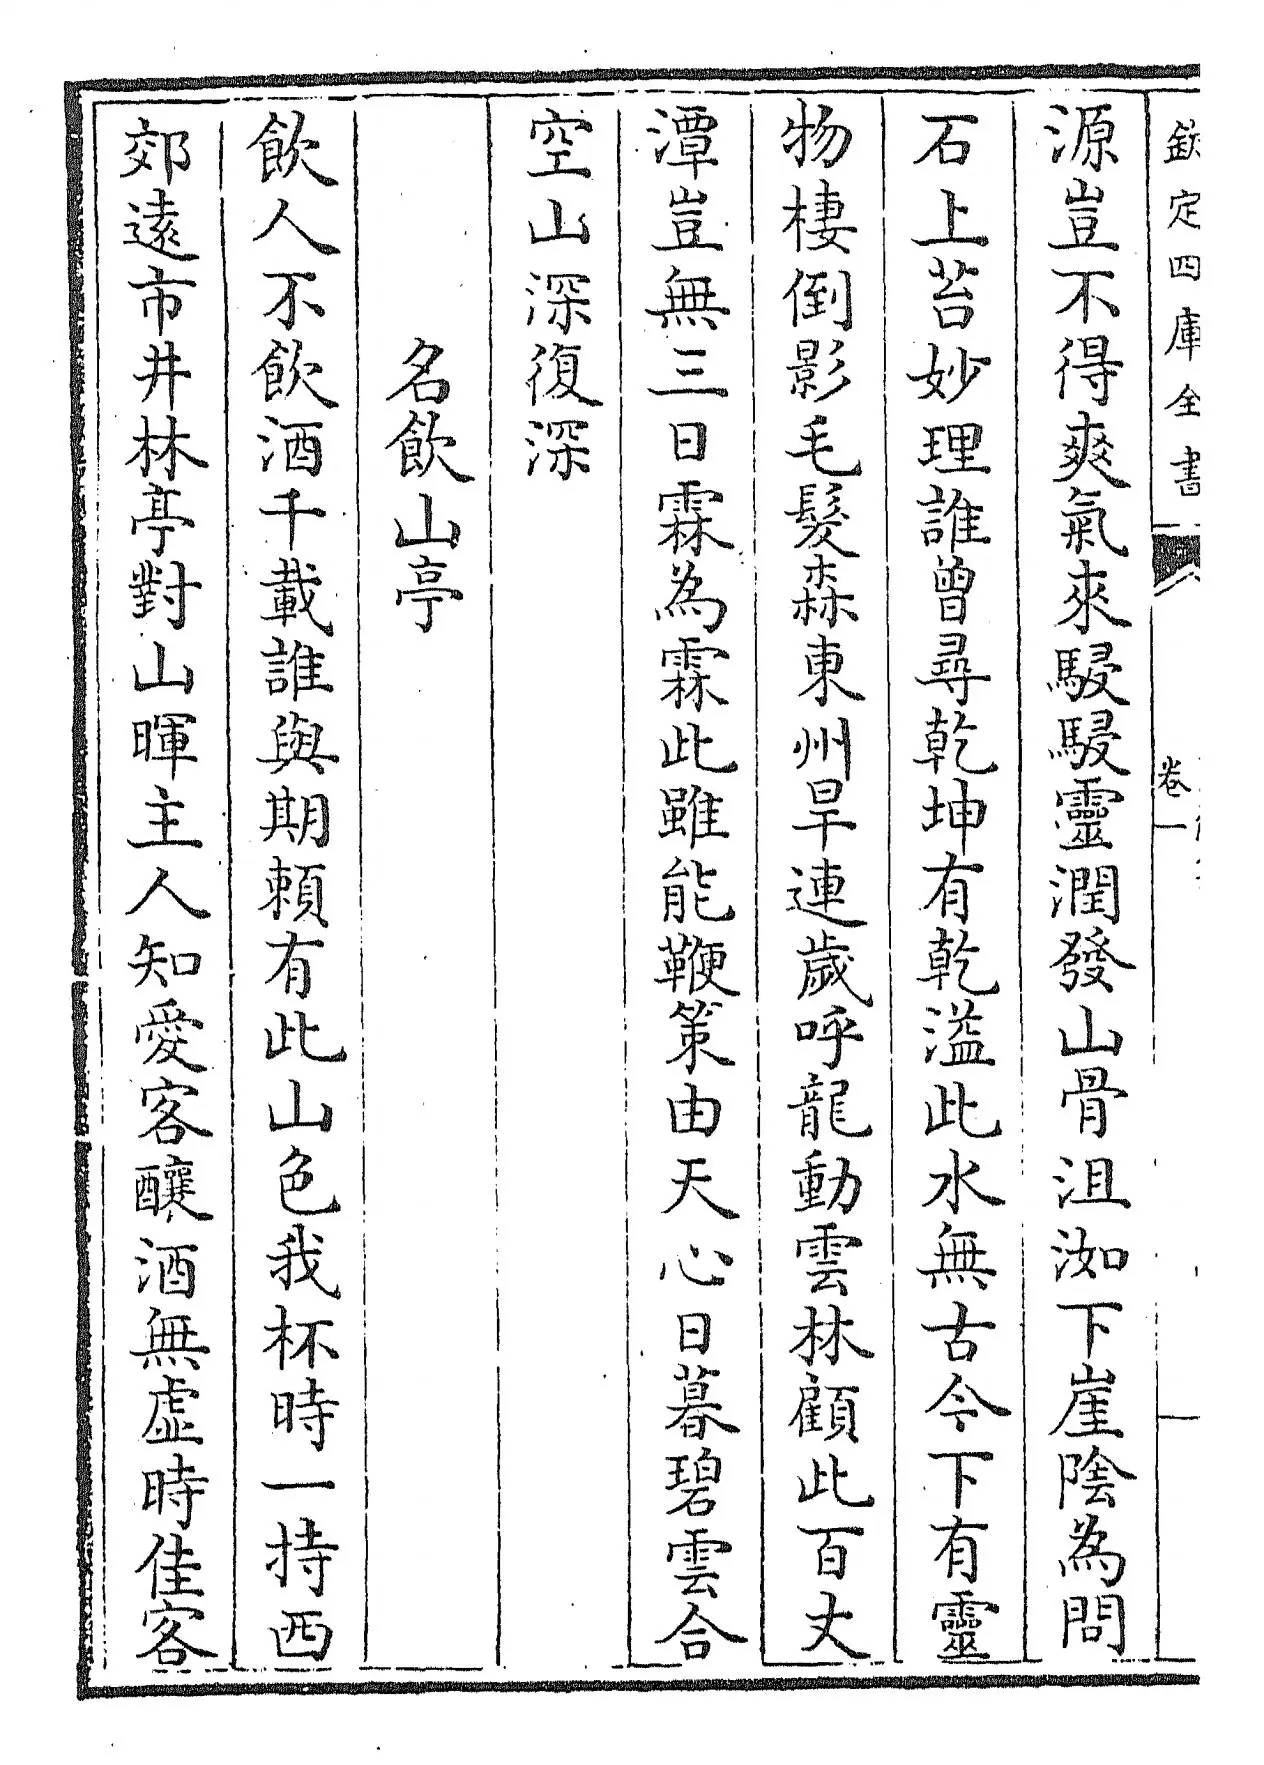 欽定四庫全書
卷一
源豈不得爽氣來駸駸靈潤發山骨沮洳下崖陰為問
石上苔妙理誰曾尋乾坤有乾溢此水無古今下有靈
物棲倒影毛髮森東州旱連歲呼龍動雲林顧此百丈
潭豈無三日霖為霖此雖能鞭策由天心日暮碧雲合
空山深復深
名飲山亭
飲人不飲酒千載誰與期賴有此山色我杯時一持西
郊遠市井林亭對山暉主人知愛客釀酒無虛時佳客